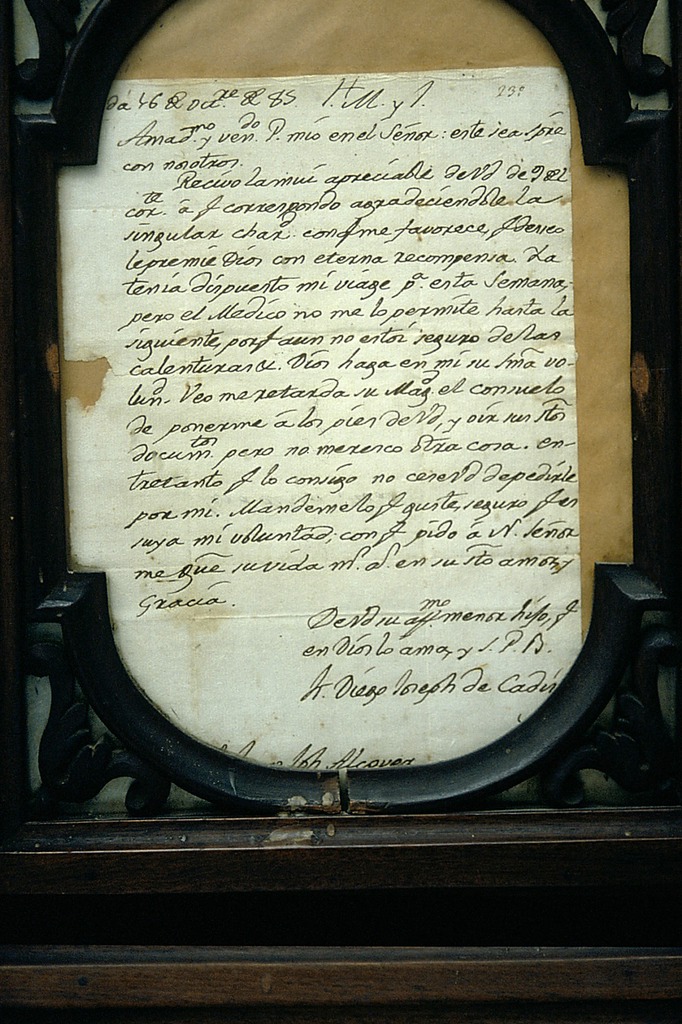 da 16 de Octre de 85 J. M. y J. 239
Amadmo y vendo P. mio en el Señor: este sea spre
con nosotros.
Recivo la mui apreciable de Vd de 9 del
corte á q correspondo agradeciendole la
singular chard con q me favorece, q deseo
le premie Dios con eterna recompensa. Ya
tenia dispuesto mi viage pa esta Semana,
pero el Medico no me lo permite hasta la
siguiente, porq aun no estoi seguro de las
calenturas &. Dios haga en mi su Sma vo-
lund. Veo me retarda su Magd el consuelo
de ponerme á los pies de Vd, y oir sus stos
documtos pero no meresco otra cosa. en-
tretanto q lo consigo no cese Vd de pedirle
por mi. Mandeme lo q guste, seguro q es
suya mi voluntad; con q pido á N. Señor
me gue su vida ms as en su sto amor, y
Gracia.
De Vd su affmo menor hijo, q
en Dios lo ama, y S. P. B.
Fr. Diego Joseph de Cadiz
Alcover